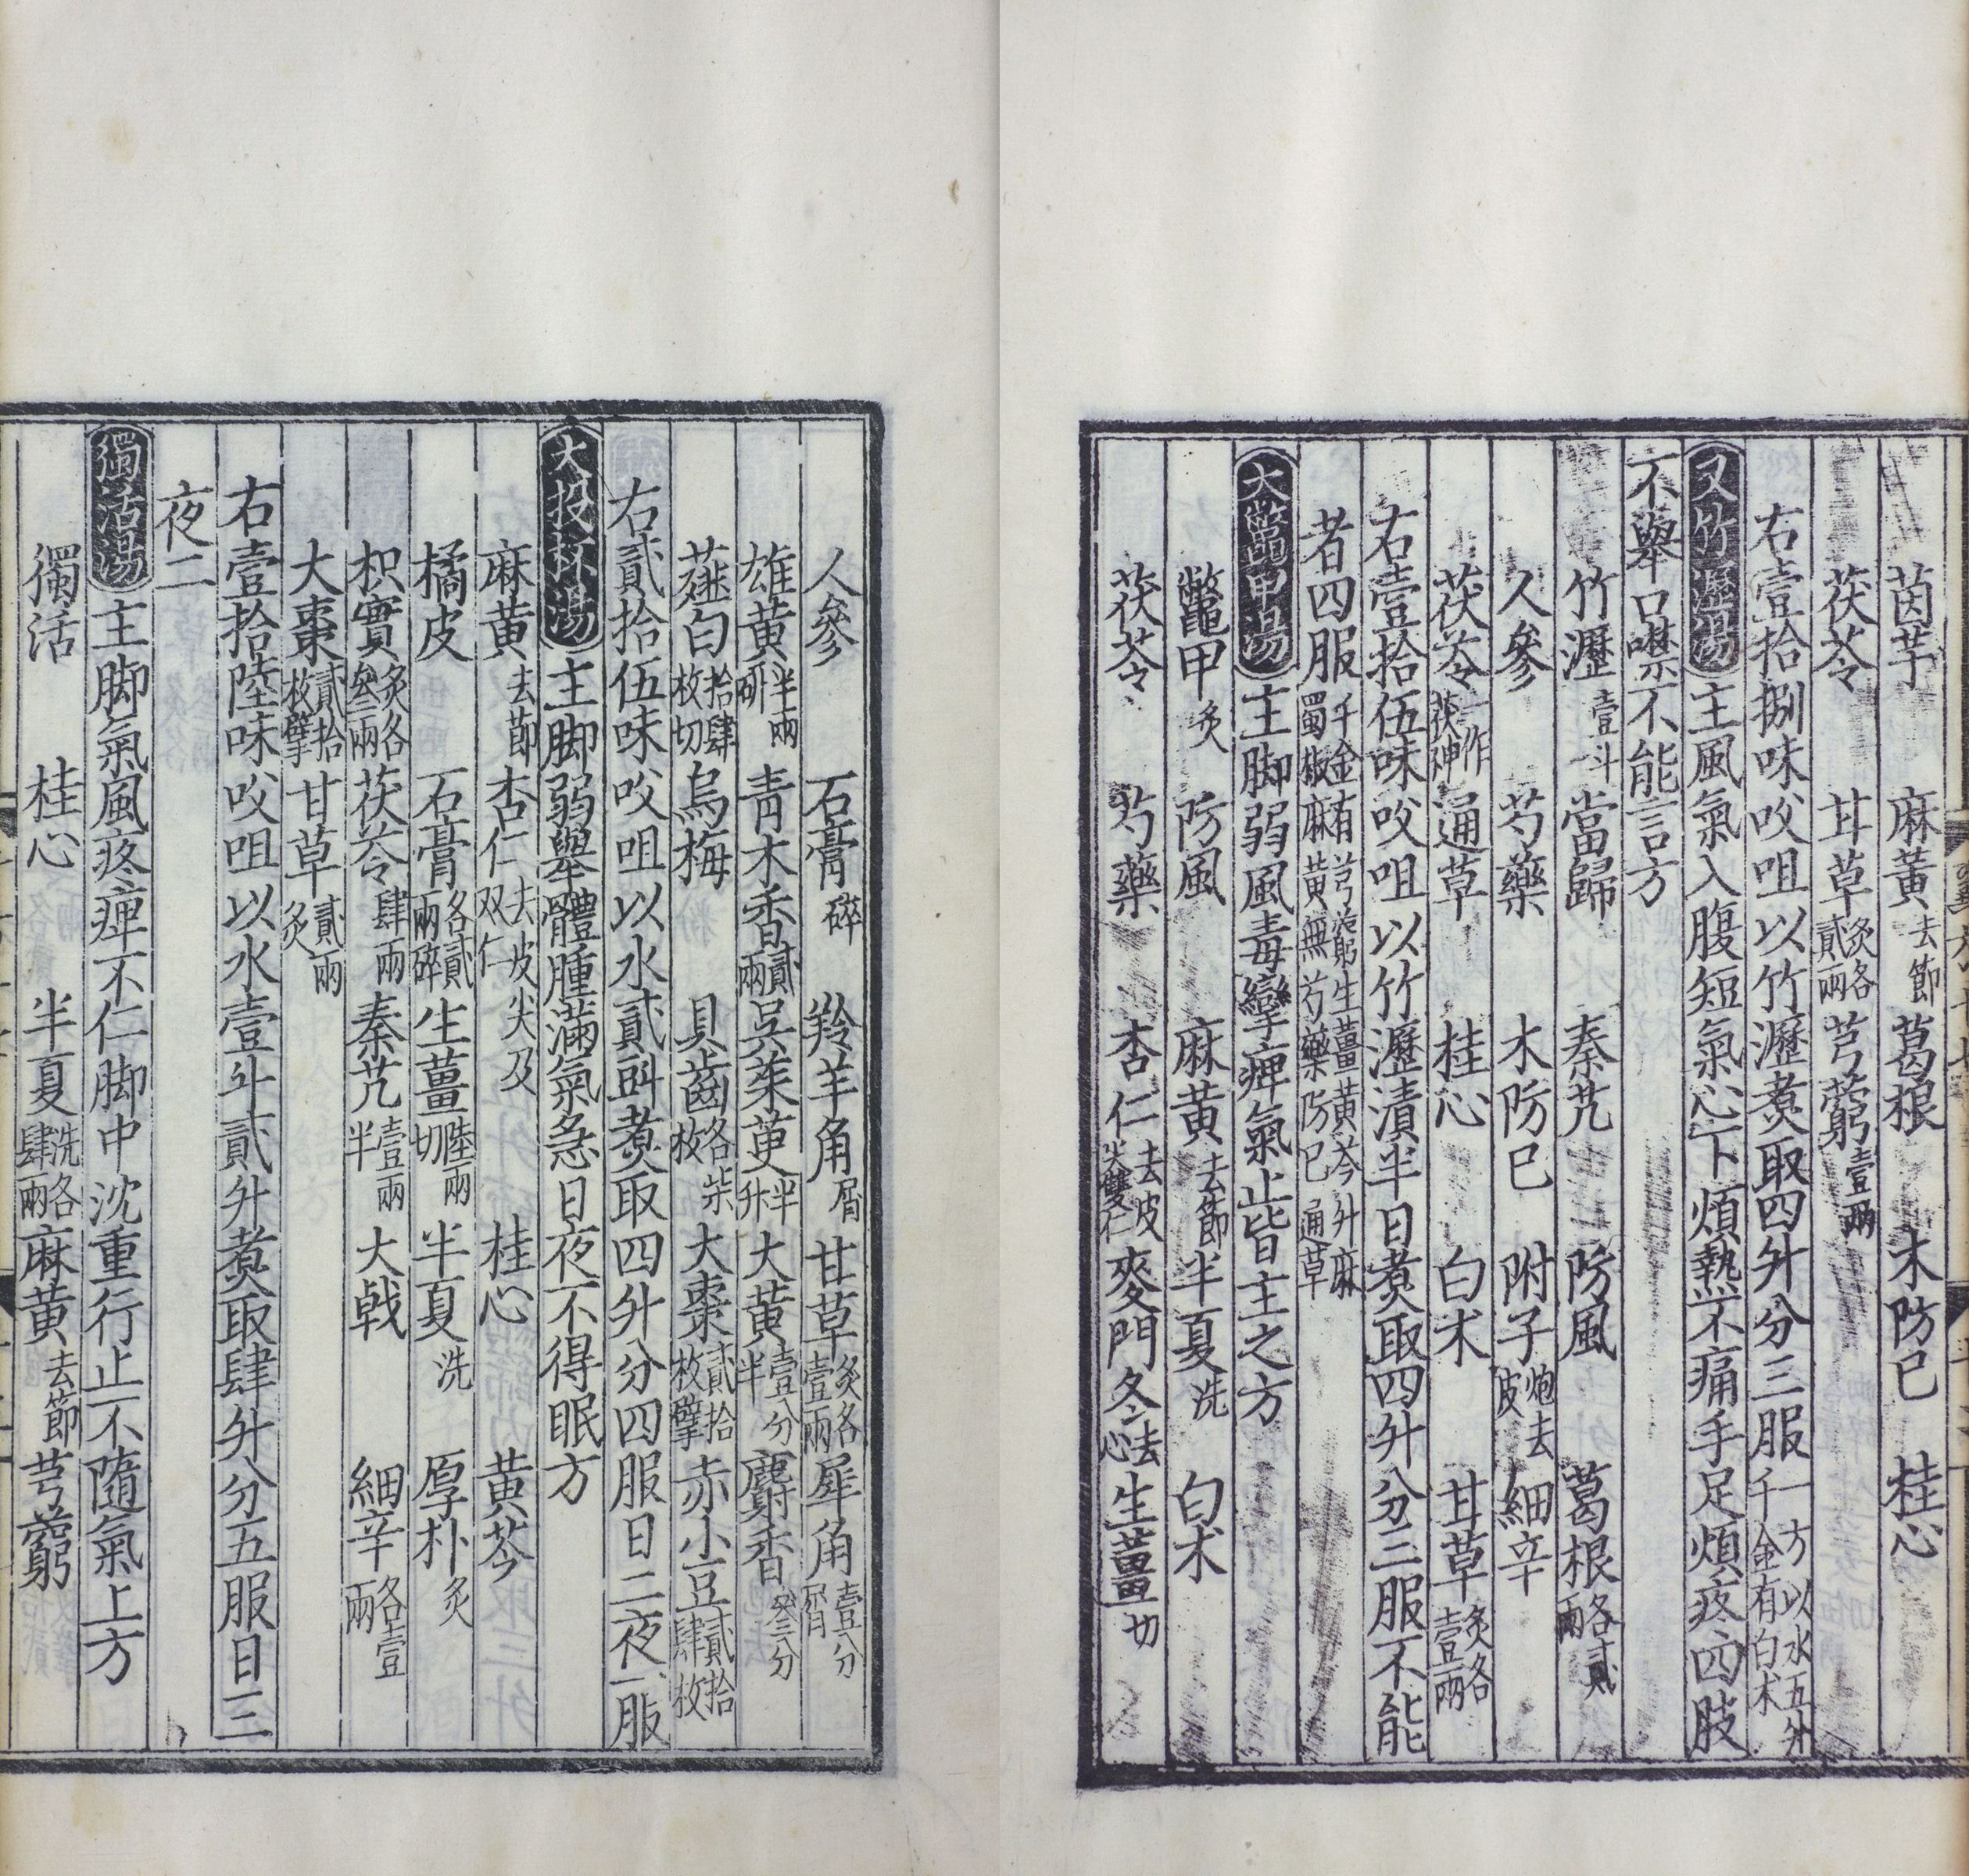 茵芋 麻黃去節 葛根 木防已 桂心
茯苓 甘草炙各貳兩 芎藭壹兩
右壹拾捌味㕮咀以竹瀝煑取四升分三服一方以水五升千金有白朮
又竹瀝湯主風氣入腹短氣心下煩熱不痛手足煩疼四肢
不舉口噤不能言方
竹瀝壹斗 當歸 秦艽 防風 葛根各貳兩
人參 芍藥 木防已 附子炮去皮 細辛
茯苓一作茯神 通草 桂心 白朮 甘草炙各壹兩
右壹拾伍味㕮咀以竹瀝漬半日煑取四升分三服不能
者四服千金有芎藭生薑黃芩升麻蜀椒麻黃無芍藥防已通草
大鼈甲湯主脚弱風毒攣痺氣止皆主之方
鼈甲炙 防風 麻黃去節 半夏洗 白朮
茯苓 芍藥 杏仁去皮尖雙仁 麥門冬去心 生薑切
人參 石膏碎 羚羊角屑 甘草炙各壹兩 犀角壹分屑
雄黃半兩研 青木香貳兩 吳茱萸半升 大黃壹分半 麝香叄分
薤白拾肆枚切 烏梅 貝齒各柒枚 大棗貳拾枚擘 赤小豆貳拾肆枚
右貳拾伍味㕮咀以水貳㪷煑取四升分四服日二夜一服
大投杯湯主脚弱舉體腫滿氣急日夜不得眠方
麻黃去節 杏仁去皮尖及双仁 桂心 黃芩
橘皮 石膏各貳兩碎 生薑陸兩切 半夏洗 厚朴炙
枳實炙各叄兩 茯苓肆兩 秦艽壹兩半 大戟 細辛各壹兩
大棗貳拾枚擘 甘草貳兩炙
右壹拾陸味㕮咀以水壹斗貳升煑取肆升分五服日三
夜二
獨活湯主脚氣風疼痺不仁脚中沈重行止不隨氣上方
獨活 桂心 半夏洗各肆兩 麻黃去節 芎藭